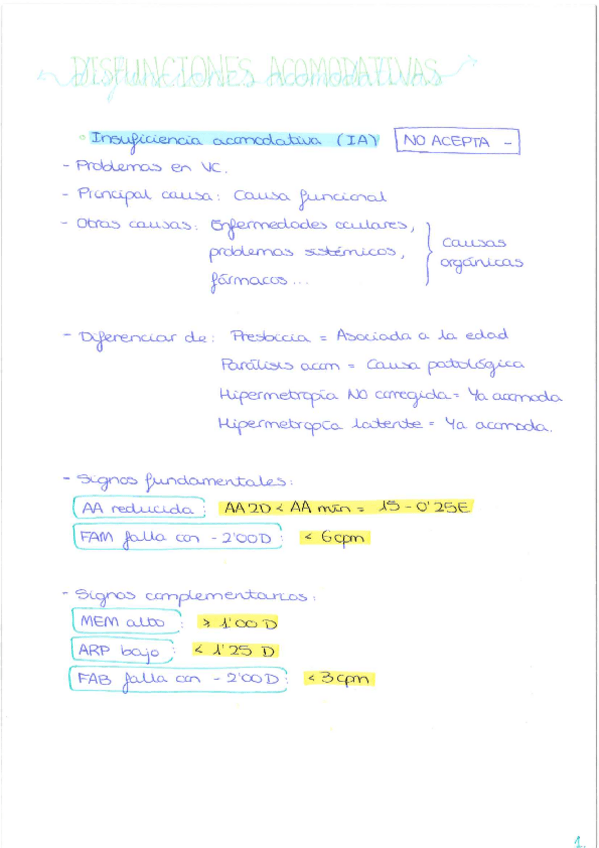 DISFUNCIONES ACOMODATIVAS
◦ Insuficiencia acomodativa (IA) NO ACEPTA -
- Problemas en VC.
- Principal causa: Causa funcional
- Otras causas: Enfermedades oculares,
problemas sistémicos,
fármacos...
causas
orgánicas
- Diferenciar de: Presbicia = Asociada a la edad
Parálisis acom = Causa patológica
Hipermetropía NO corregida = Ya acomoda
Hipermetropía latente = Ya acomoda.
- Signos fundamentales:
AA reducida: AA 2D < AA mín = 15 - 0'25E
FAM falla con - 2'00D: < 6cpm
- Signos complementarios:
MEM alto: > 1'00 D
ARP bajo: < 1'25 D
FAB falla con - 2'00D: < 3cpm
1.